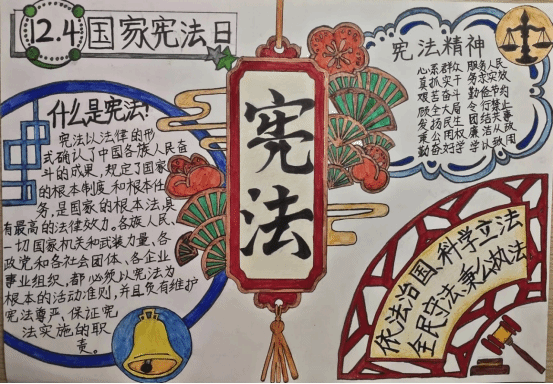 12.4国家宪法日
什么是宪法?
宪法以法律的形
式确认了中国各族人民奋
斗的成果,规定了国家
的根本制度和根本任
务,是国家的根本法,具
有最高的法律效力。各族人民、
一切国家机关和武装力量、各
政党和各社会团体、各企业
事业组织,都必须以宪法为
根本的活动准则,并且负有维护
宪法尊严、保证宪
法实施的职
责。
宪法
宪法精神
心系群众 服务人民
真抓实干 务求实效
艰苦奋斗 勤俭节约
顾全大局 令行禁止
发扬民主 团结
秉公用权 廉洁从政
勤奋好学 学以致用
依法治国、科学立法
全民守法、秉公执法